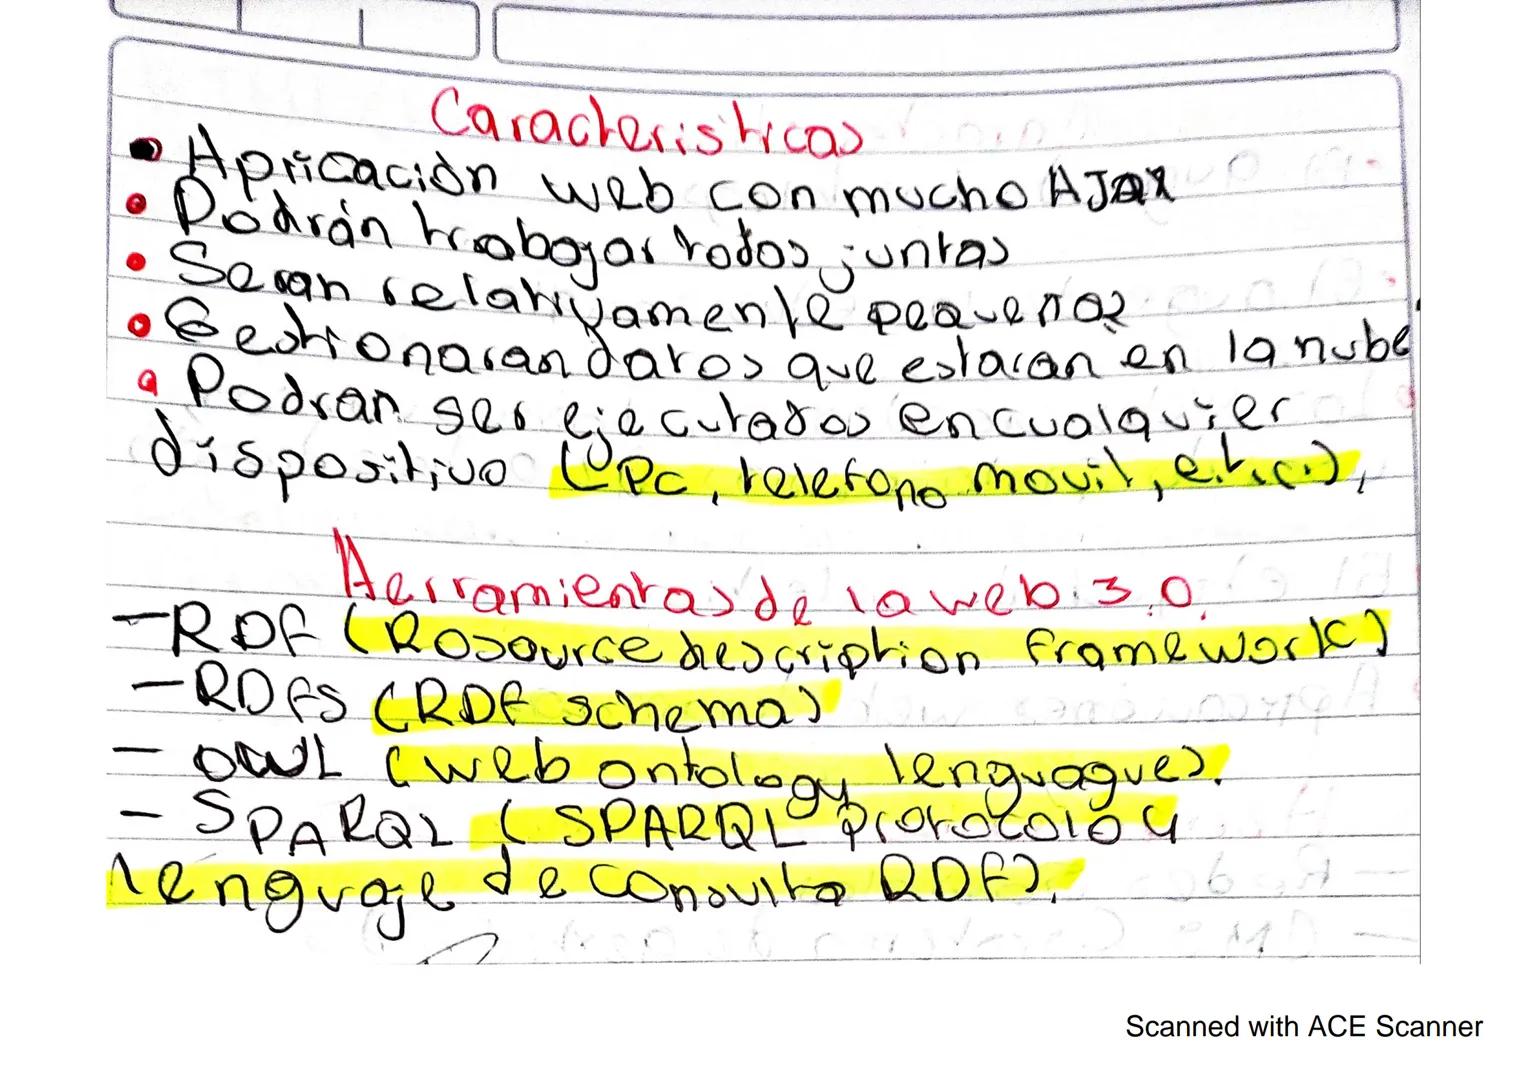 Caracteristicas
• Apricación web con mucho AJax
• Podrán trabajar todos juntas
• Seran relativamente pequeños
• Gestionaran datos que estaran en la nube
• Podran ser ejecutados en cualquier
dispositivo (Pc, telefono movil, e.t.c.),
Herramientas de la web 3.0.
- RDF (Rosource description framework)
- RDFS (RDF schema)
- OWL (web ontology lenguague).
- SPARQL (SPARQL protocolo y
lenguaje de consulta RDF).
Scanned with ACE Scanner